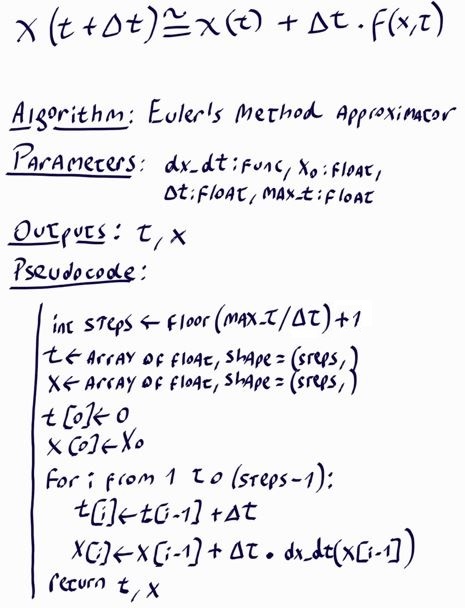 x(t+Δt)≅x(t) + Δt · f(x,t)
Algorithm: Euler's Method Approximator
Parameters: dx_dt:func, x₀:float,
Δt:float, max_t:float
Outputs: t, x
Pseudocode:
int steps ← floor(max_t/Δt)+1
t ← Array of float, shape=(steps,)
x ← Array of float, shape=(steps,)
t[0]←0
x[0]←x₀
for i from 1 to (steps-1):
t[i]←t[i-1] +Δt
x[i]←x[i-1] + Δt · dx_dt(x[i-1])
return t, x